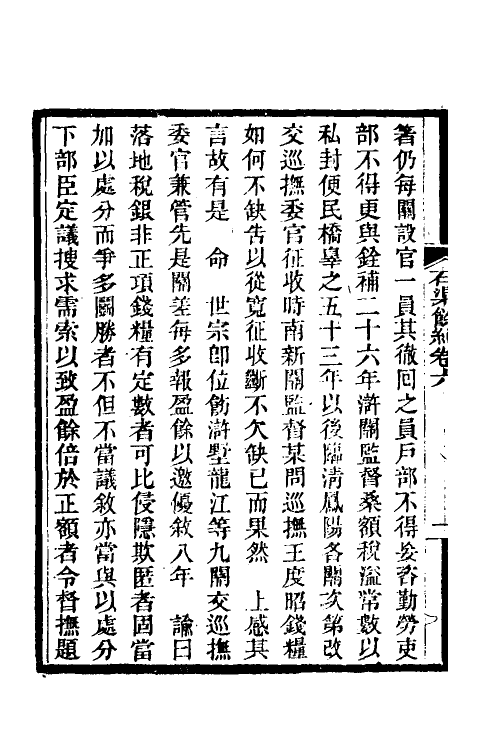 石渠餘紀卷六
箸仍每關設官一員其徹囘之員戶部不得妄咨勤勞吏
部不得更與銓補二十六年滸關監督桑額稅溢常數以
私封便民橋辠之五十三年以後臨淸鳳陽各關次第改
交巡撫委官征收時南新關監督某問巡撫王度昭錢糧
如何不缺吿以從寬征收斷不欠缺已而果然 上感其
言故有是 命 世宗卽位飭滸墅龍江等九關交巡撫
委官兼管先是關差每多報盈餘以邀優敘八年 諭曰
落地稅銀非正項錢糧有定數者可比侵隱欺匿者固當
加以處分而爭多鬭勝者不但不當議敘亦當與以處分
下部臣定議搜求需索以致盈餘倍於正額者令督撫題